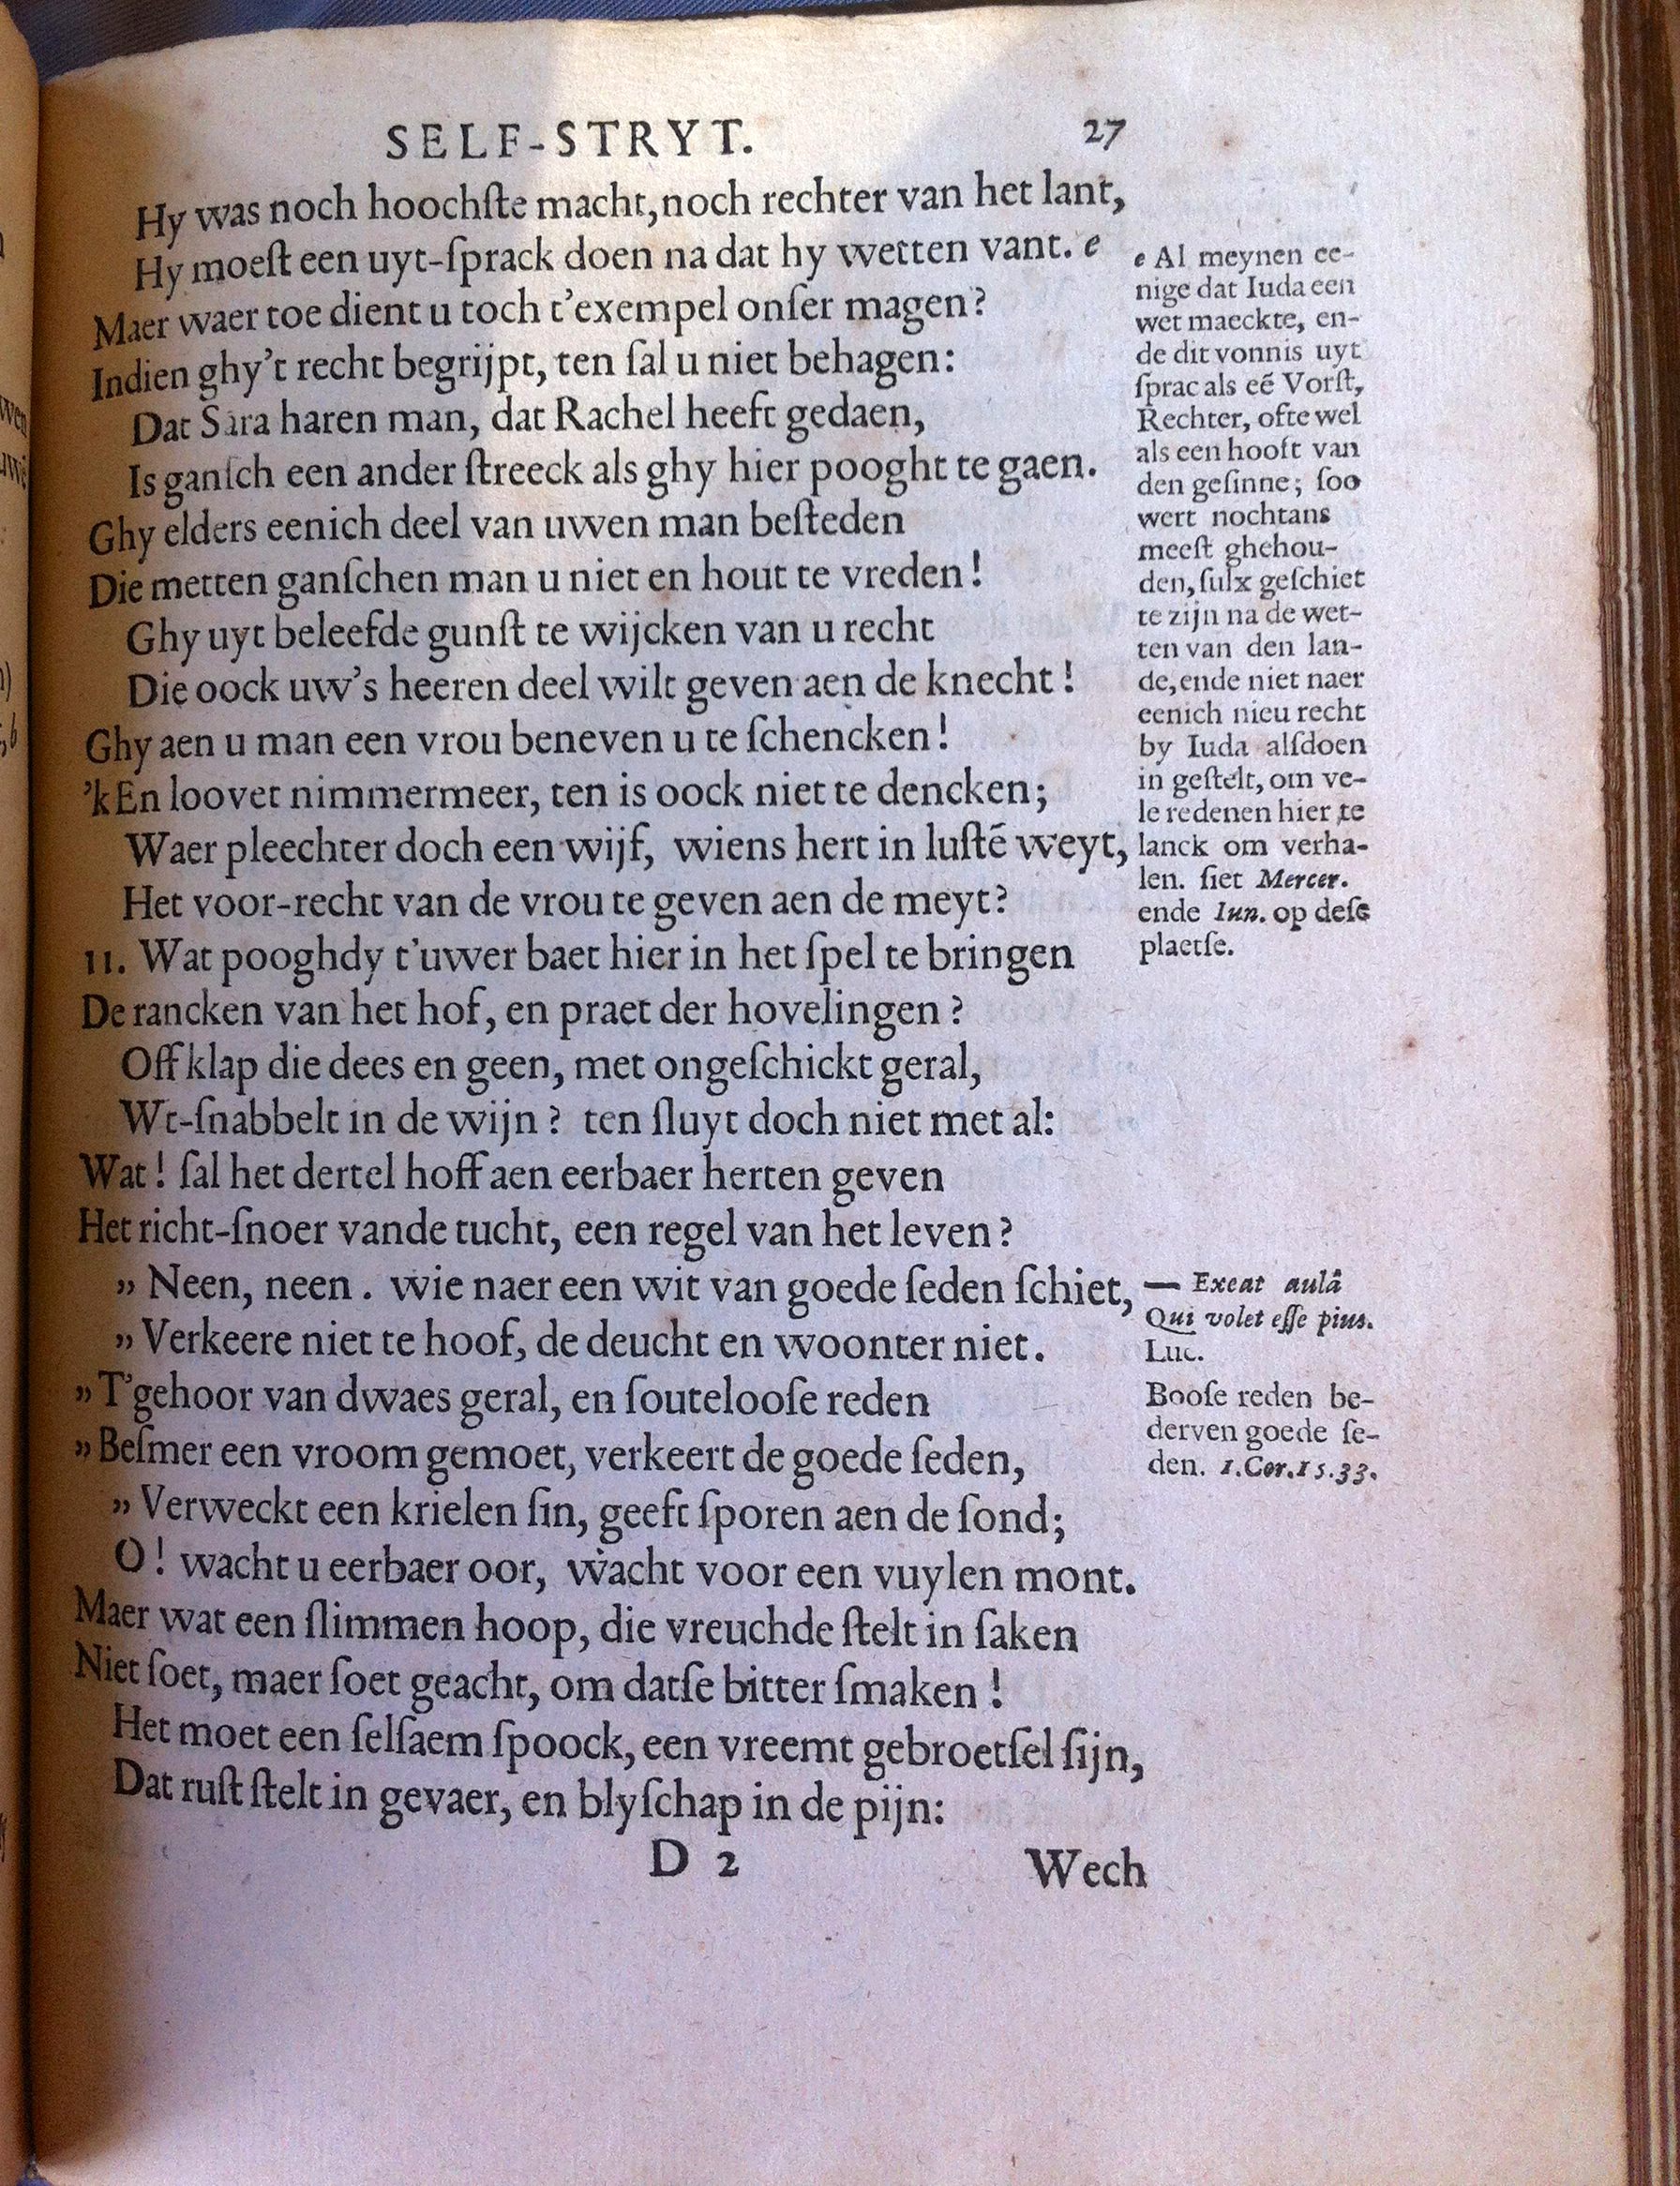 SELF-STRYT. 27
Hy was noch hoochſte macht, noch rechter van het lant,
Hy moeſt een uyt-ſprack doen na dat hy wetten vant. e
Maer waer toe dient u toch t'exempel onſer magen?
Indien ghy't recht begrijpt, ten ſal u niet behagen:
Dat Sara haren man, dat Rachel heeft gedaen,
Is ganſch een ander ſtreeck als ghy hier pooght te gaen.
Ghy elders eenich deel van uwen man beſteden
Die metten ganſchen man u niet en hout te vreden!
Ghy uyt beleefde gunſt te wijcken van u recht
Die oock uw's heeren deel wilt geven aen de knecht!
Ghy aen u man een vrou beneven u te ſchencken!
'k En loovet nimmermeer, ten is oock niet te dencken;
Waer pleechter doch een wijf, wiens hert in luſtẽ weyt,
Het voor-recht van de vrou te geven aen de meyt?
11. Wat pooghdy t'uwer baet hier in het ſpel te bringen
De rancken van het hof, en praet der hovelingen?
Off klap die dees en geen, met ongeſchickt geral,
Wt-ſnabbelt in de wijn? ten ſluyt doch niet met al:
Wat! ſal het dertel hoff aen eerbaer herten geven
Het richt-ſnoer vande tucht, een regel van het leven?
„ Neen, neen. wie naer een wit van goede ſeden ſchiet,
„ Verkeere niet te hoof, de deucht en woonter niet.
„ T'gehoor van dwaes geral, en ſoutelooſe reden
„ Beſmet een vroom gemoet, verkeert de goede ſeden,
„ Verweckt een krielen ſin, geeft ſporen aen de ſond;
O! wacht u eerbaer oor, wacht voor een vuylen mont.
Maer wat een ſlimmen hoop, die vreuchde ſtelt in ſaken
Niet ſoet, maer ſoet geacht, om datſe bitter ſmaken!
Het moet een ſelſaem ſpoock, een vreemt gebroetſel ſijn,
Dat ruſt ſtelt in gevaer, en blyſchap in de pijn:
D 2 Wech
e Al meynen ee-
nige dat Iuda een
wet maeckte, en-
de dit vonnis uyt
ſprac als eẽ Vorſt,
Rechter, ofte wel
als een hooft van
den geſinne; ſoo
wert nochtans
meeſt ghehou-
den, ſulx geſchiet
te zijn na de wet-
ten van den lan-
de, ende niet naer
eenich nieu recht
by Iuda alſdoen
in geſtelt, om ve-
le redenen hier te
lanck om verha-
len. ſiet Mercer.
ende Iun. op deſe
plaetſe.
— Exeat aulâ
Qui volet eſſe pius.
Luc.
Booſe reden be-
derven goede ſe-
den. 1.Cor.15.33.